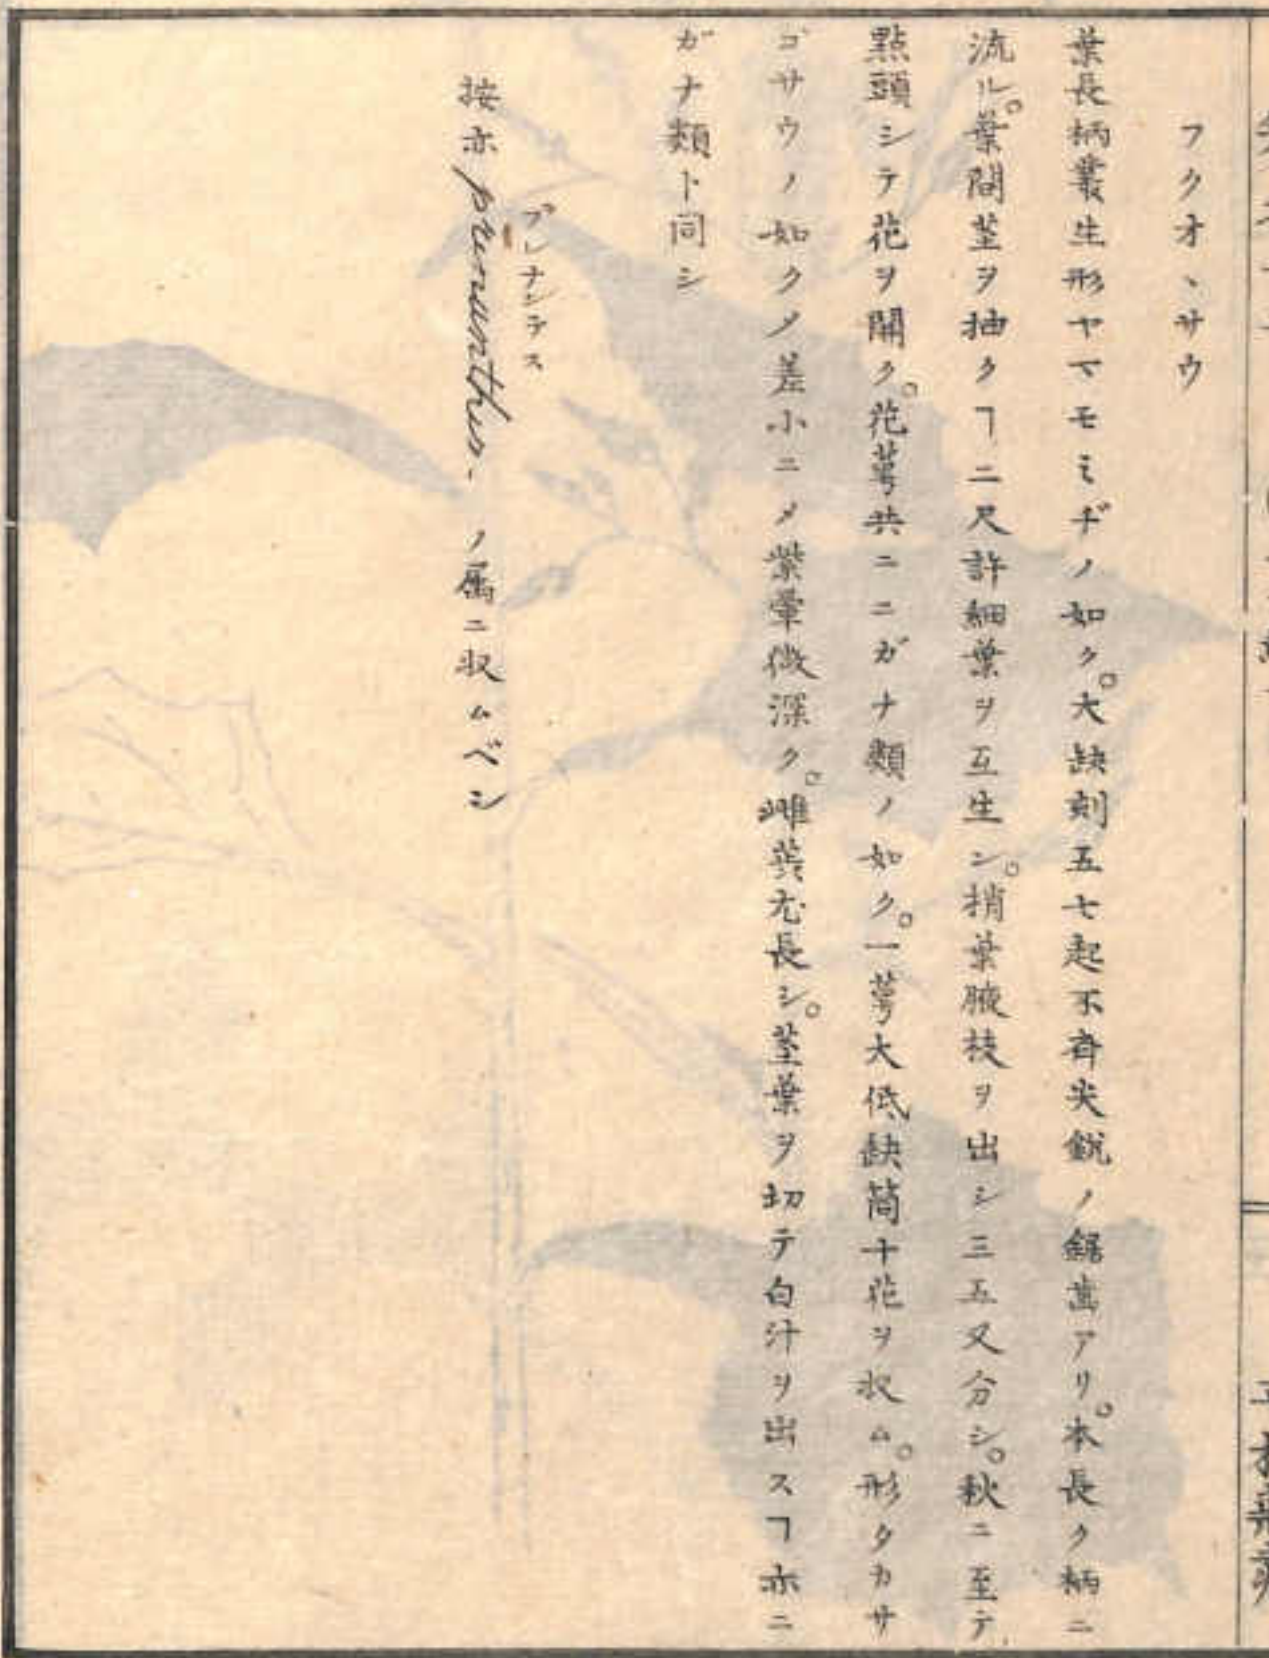 フクオヽサウ
葉長柄叢生形ヤマモミヂノ如ク。大缺刻五七起不斉尖鋭ノ鋸歯アリ。本長ク柄ニ
流ル。葉間茎ヲ抽クヿ二尺許細葉ヲ互生シ。梢葉腋枝ヲ出シ三五又分シ。秋ニ至テ
點頭シテ花ヲ開ク。花萼共ニニガナ類ノ如ク。一萼大低缺筒十花ヲ收ム。形タカサ
ゴサウノ如クメ差小ニメ紫暈微深ク。雌蘂尤長シ。茎葉ヲ切テ白汁ヲ出スヿ亦ニ
ガナ類ト同シ
按亦prenanthes.ノ属ニ収ムベシ
プレナンテス